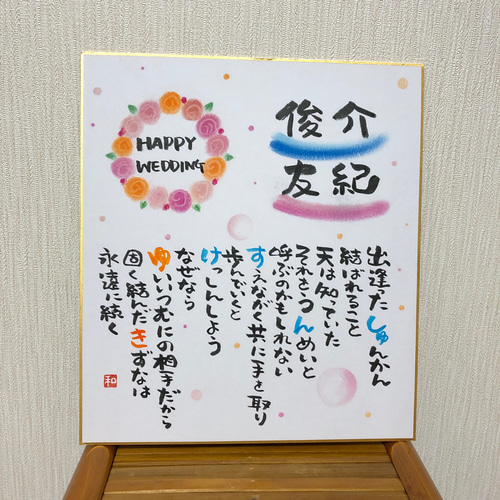 HAPPY
WEDDING
俊介
友紀
出逢ったしゅんかん
結ばれること
天は知っていた
それをうんめいと
呼ぶのかもしれない
すえながく共に手を取り
歩んでいくと
けっしんしよう
なぜなら
ゆいいつむにの相手だから
固く結んだきずなは
永遠に続く
和